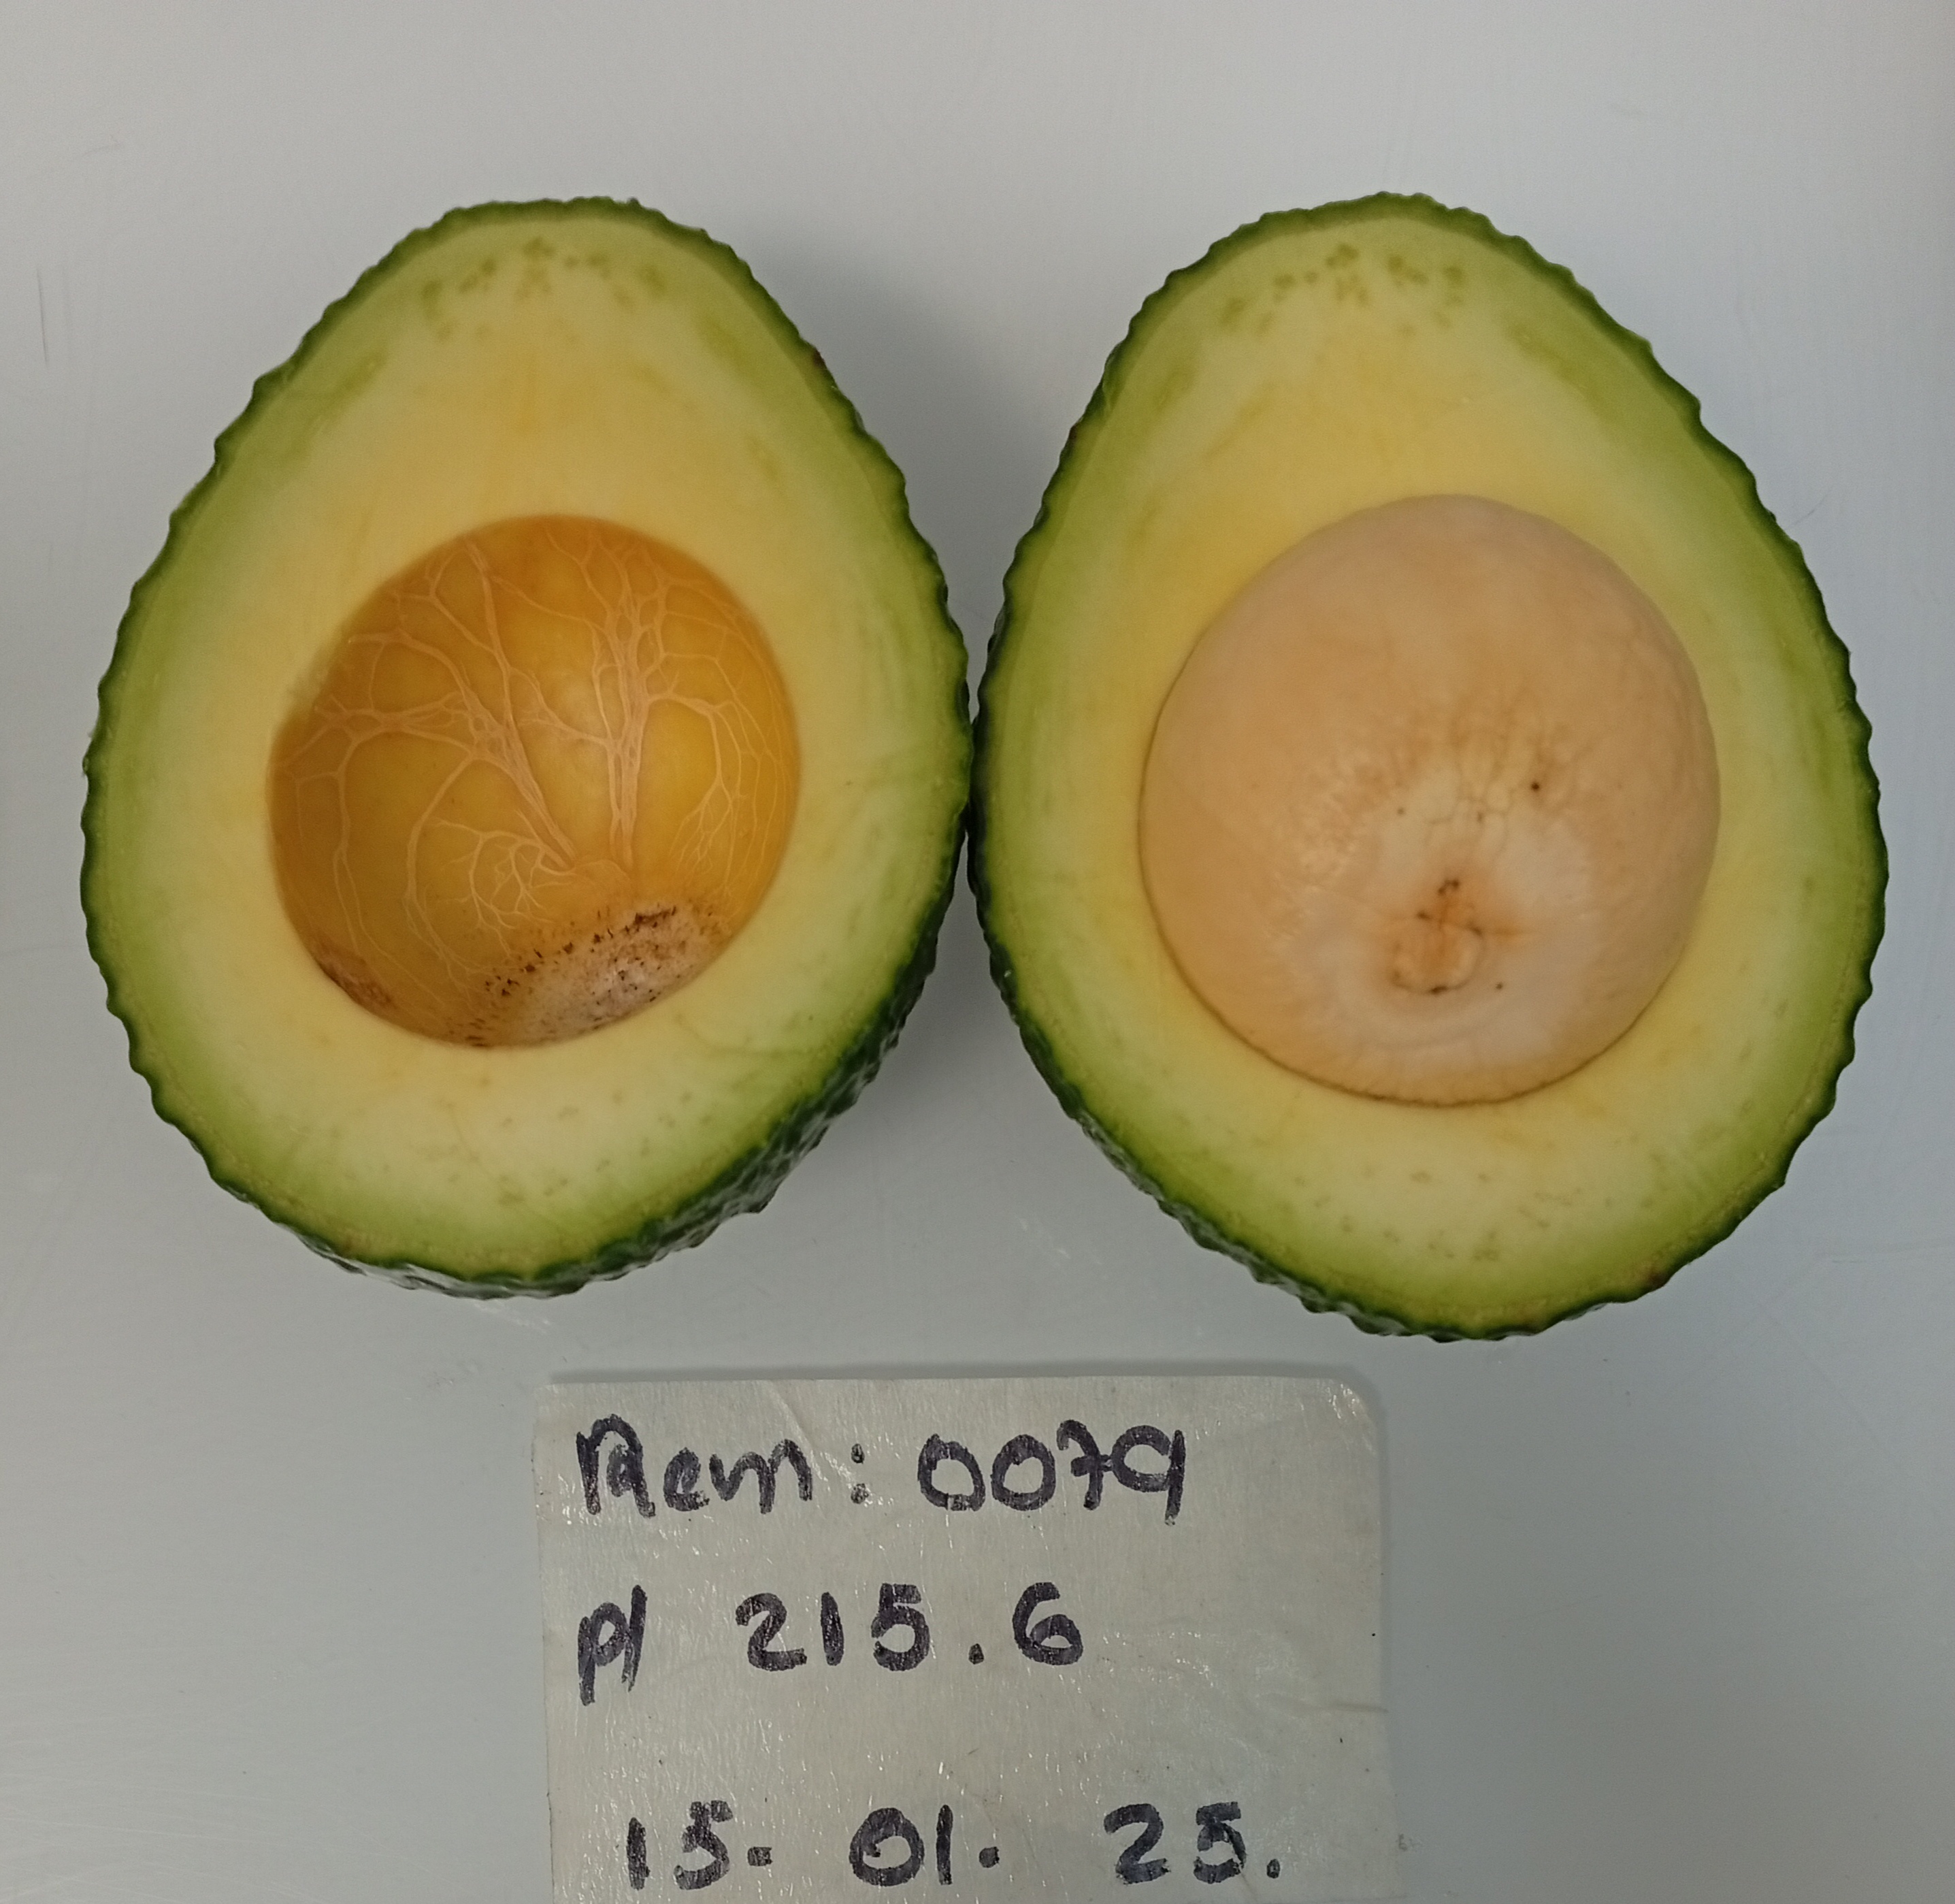 Rem: 0079
p/ 215.6
15. 01. 25.